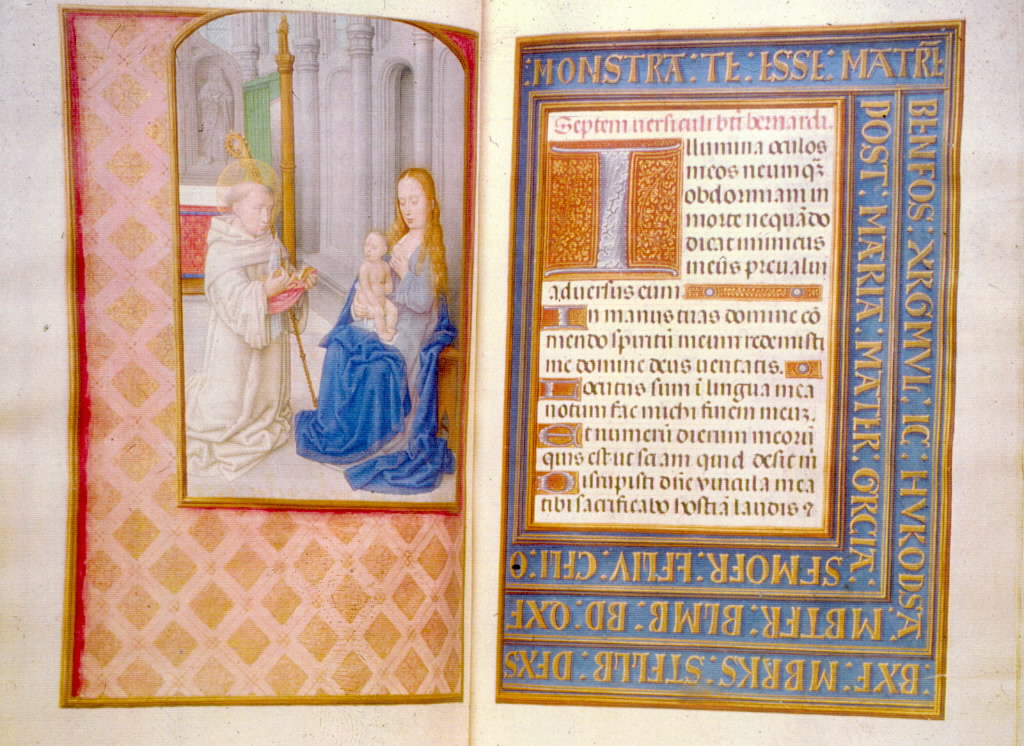 MONSTRA · TE · ESSE · MATRE̅
BENFOS · XIRGMVL · IC · HVKODSA
POST · MARIA · MATER · GRCIA
SEMOER · FELIV · CELI · O
MBTER · BLMB · BD · OXF
BXF · MBRKS · STELLB · DEXS
Septem uersiculi bti bernardi.
Illumina oculos
meos ne umq̃3
obdormam in
morte ne quãdo
dicat inimicus
meus preualui
aduersus eum
In manus tuas domine cõ
mendo spiritũ meum redemisti
me domine deus ueritatis.
Locutus sum ĩ lingua mea
notum fac michi finem meuz.
Et numerũ dierum meorũ
quis est ut sciam quid desit m̃
Dirupisti dñe vincula mea
tibi sacrificabo hostiã laudis